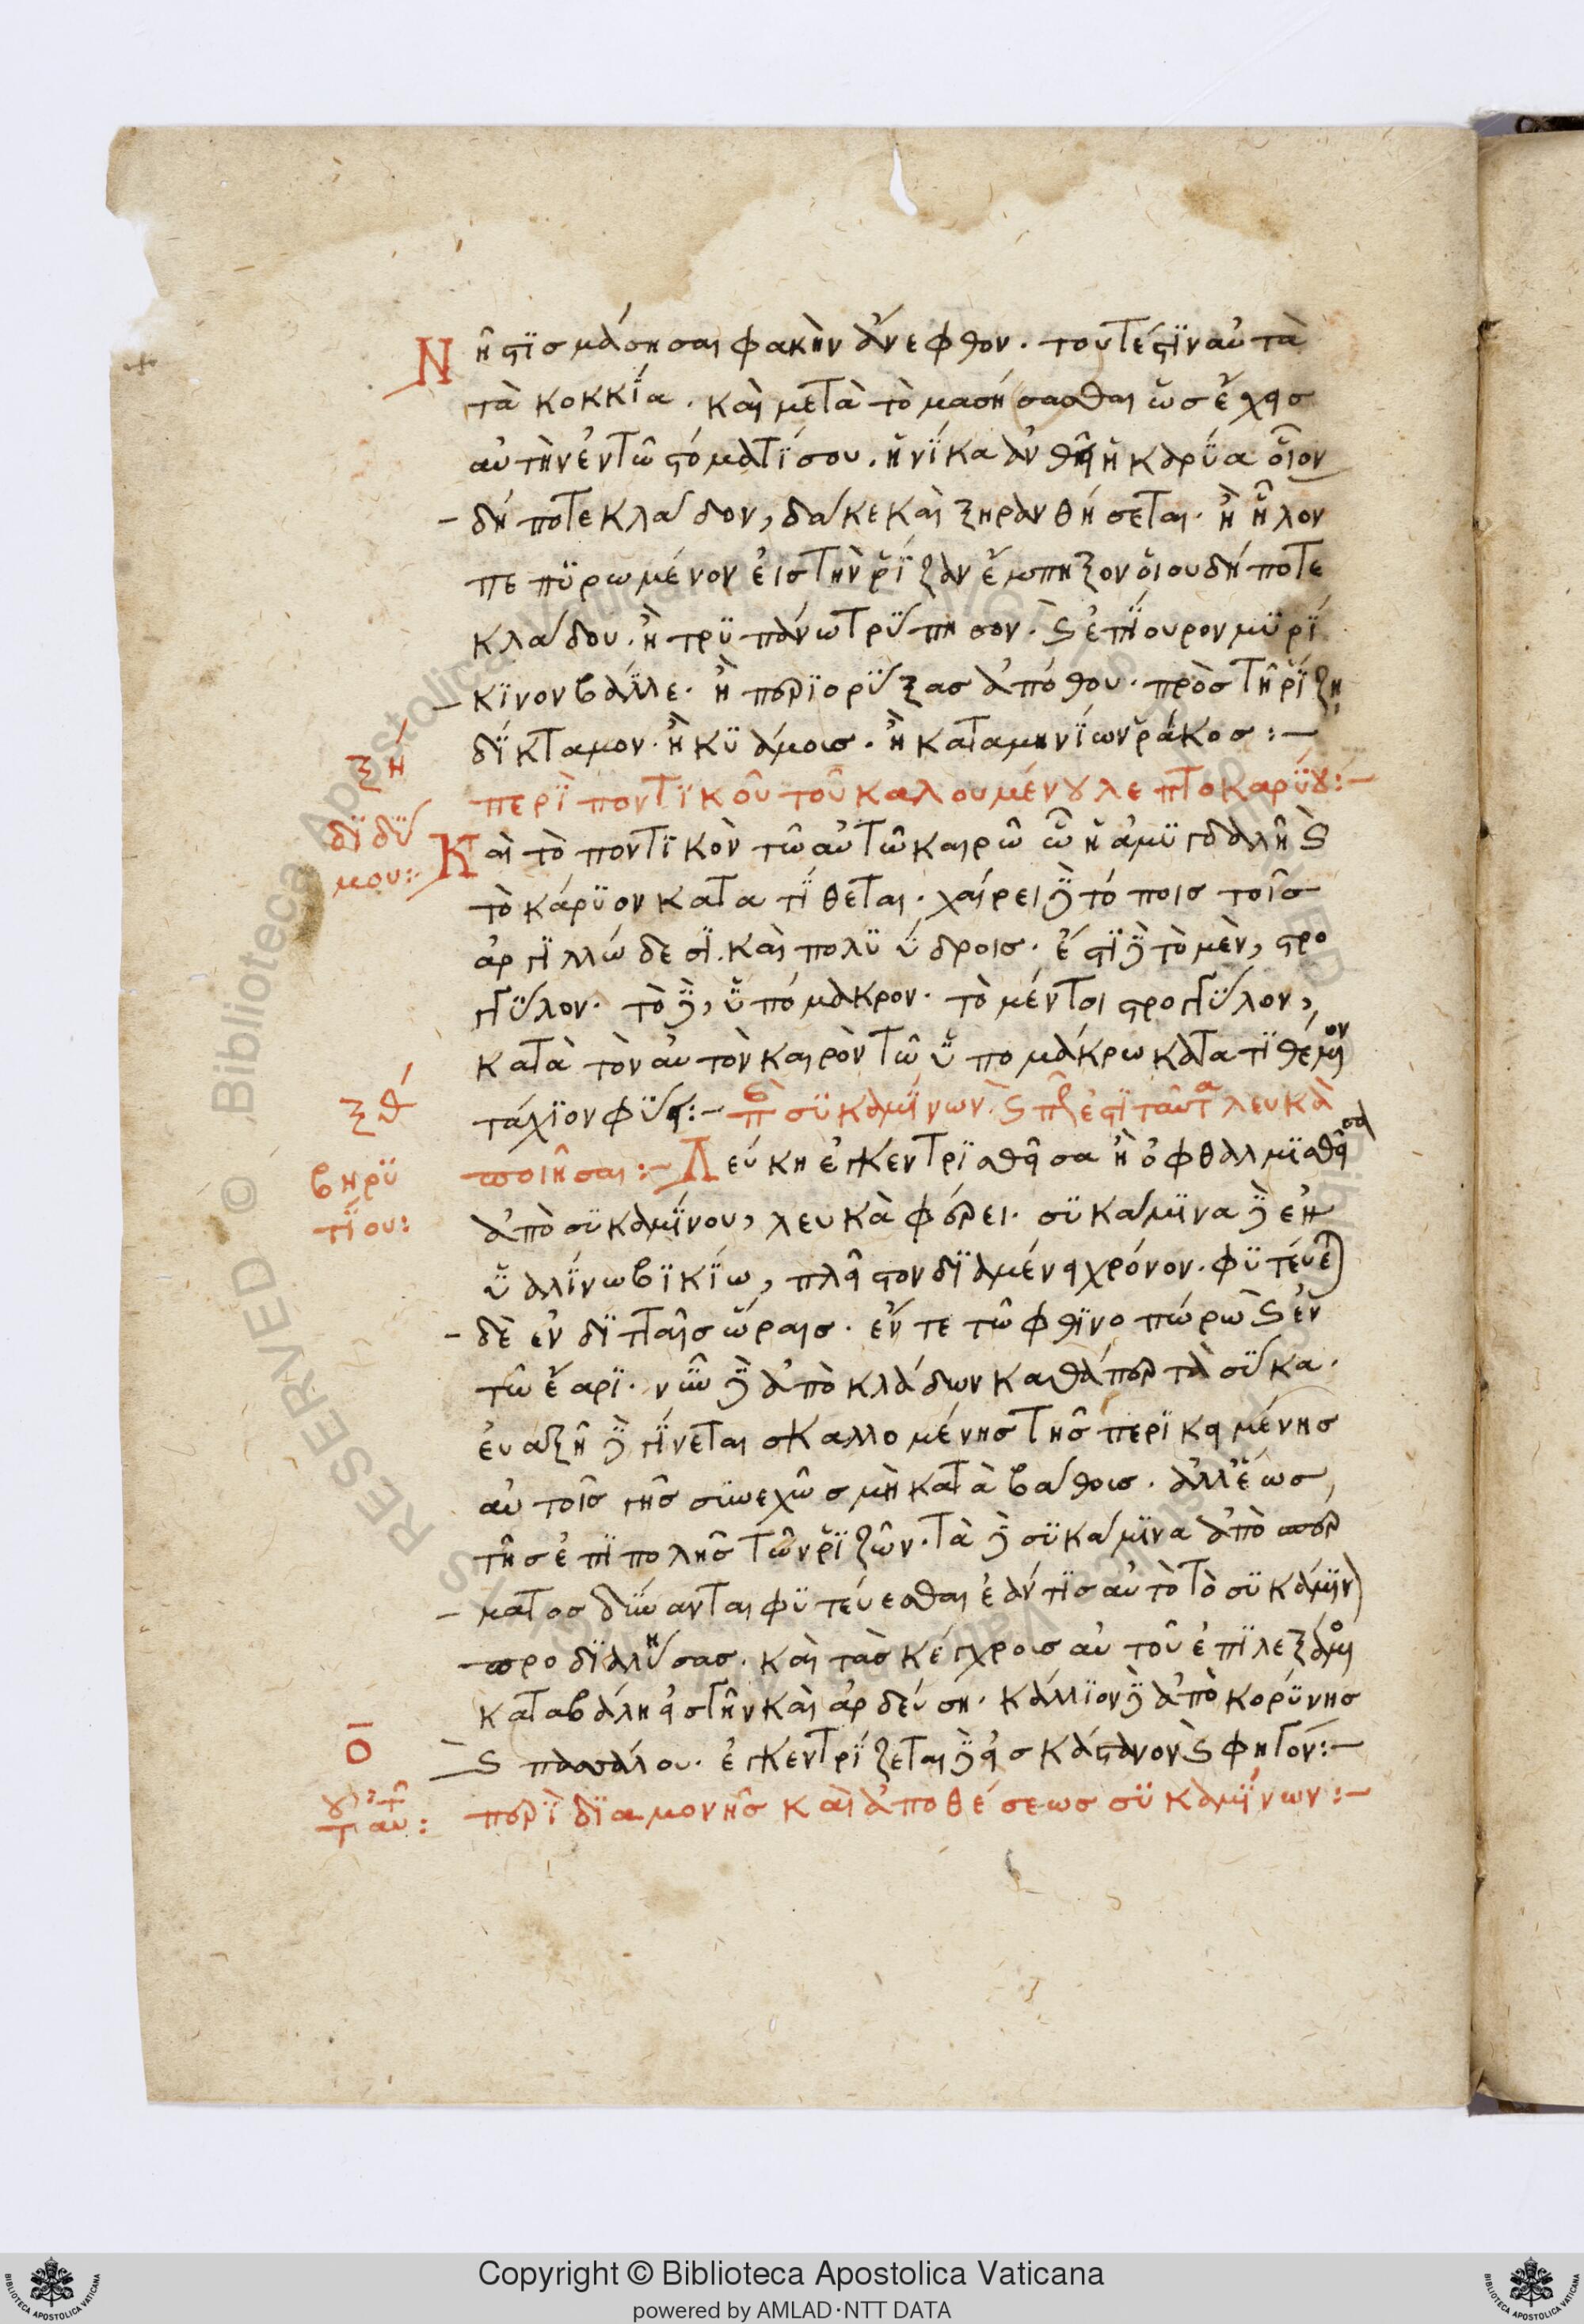 Νῆστϊσ μάσησαι φακὴν ἄνεφθον. τουτέστϊν αὐτὰ
τὰ κοκκΐα. καὶ μετὰ τὸ μασήσασθαι ὡσ ἔχεισ
αὐτὴν ἐν τῶ στόματί σου. ἡνΐκα ἀνθῆ ἡ καρΰα ὅιον
δήποτε κλάδον, δάκε καὶ ξηρανθήσεται. ἢ ἧλον
πεπϋρωμένον ἐισ τὴν ῥΐζαν ἔμπηξον ὁιουδήποτε
κλάδου. ἢ τρϋπάνω τρΰπησον. ϛ ἐπΐουρον μϋρΐ
κϊνον βάλλε. ἢ περϊορΰξασ ἀπόθου. πρὸσ τῆ ῥΐζη
δΐκταμον. ἢ κϋάμουσ. ἢ καταμηνΐων ῥάκοσ:–
ξή
περῒ ποντϊκοῦ τοῦ καλουμένου λεπτοκαρΰου:–
δϊδΰ
μου:
Καὶ τὸ ποντϊκὸν τῶ αὐτῶ καιρῶ ὧ ἡ ἀμϋγδαλῆ ϛ
τὸ κάρϋον κατατΐθεται. χαίρει δὲ τόποισ τοῖσ
ἀργϊλλώδεσϊ. καὶ πολϋΰδροισ. ἔστϊ δὲ τὸ μὲν, στρο
γγΰλον. τὸ δὲ, ὑπόμακρον. τὸ μέντοι στρογγΰλον,
κατὰ τὸν αὐτὸν καιρὸν τῶ ὑπομάκρω κατατϊθέμενον
τάχϊον φΰει:– περὶ σϋκαμΐνων. ϛ περὶ ἐστϊ ταῦτα λευκὰ
ξθ
ποιῆσαι:– Λεύκη ἐγκεντρϊσθεῖσα ἢ ὀφθαλμϊσθεῖσα
βηρϋ
τΐου:
ἀπὸ σϋκαμΐνου, λευκὰ φέρει. σϋκάμϊνα δὲ ἐν
ὑαλΐνω βϊκΐω, πλεῖστον δϊαμένει χρόνον. φϋτέυε
δὲ ἐν δϊτταῖσ ὥραισ. ἔν τε τῶ φθϊνοπώρω ϛ ἐν
τῶ ἔαρϊ. νῦν δὲ ἀπὸ κλάδων καθάπερ τὰ σΰκα.
ἐυαξῆ δὲ γΐνεται σκαλλομένησ τῆσ περϊκειμένησ
αὐτοῖσ γῆσ συνεχῶσ μὴ κατὰ βάθουσ. ἀλλ' ἕωσ
τῆσ ἐπϊπολῆσ τῶν ῥϊζῶν. τὰ δὲ σϋκάμϊνα ἀπὸ σπέρ
ματοσ δύνανται φϋτεύεσθαι ἐάν τϊσ αὐτὸ τὸ σϋκάμϊνον
προδϊαλΰσασ. καὶ τὰσ κέγχρουσ αὐτοῦ ἐπϊλεξάμενος
καταβάλη εἰσ γῆν καὶ ἀρδεύση. κάλλϊον δὲ ἀπὸ κορΰνησ
ϛ πασσάλου. ἐγκεντρΐζεται δὲ εἰσ κάστανον ϛ φηγόν:–
ο
τοῦ αὐτοῦ:
περῒ δϊαμονῆσ καὶ ἀποθέσεωσ σϋκαμΐνων:–
Copyright © Biblioteca Apostolica Vaticana
powered by AMLAD·NTT DATA